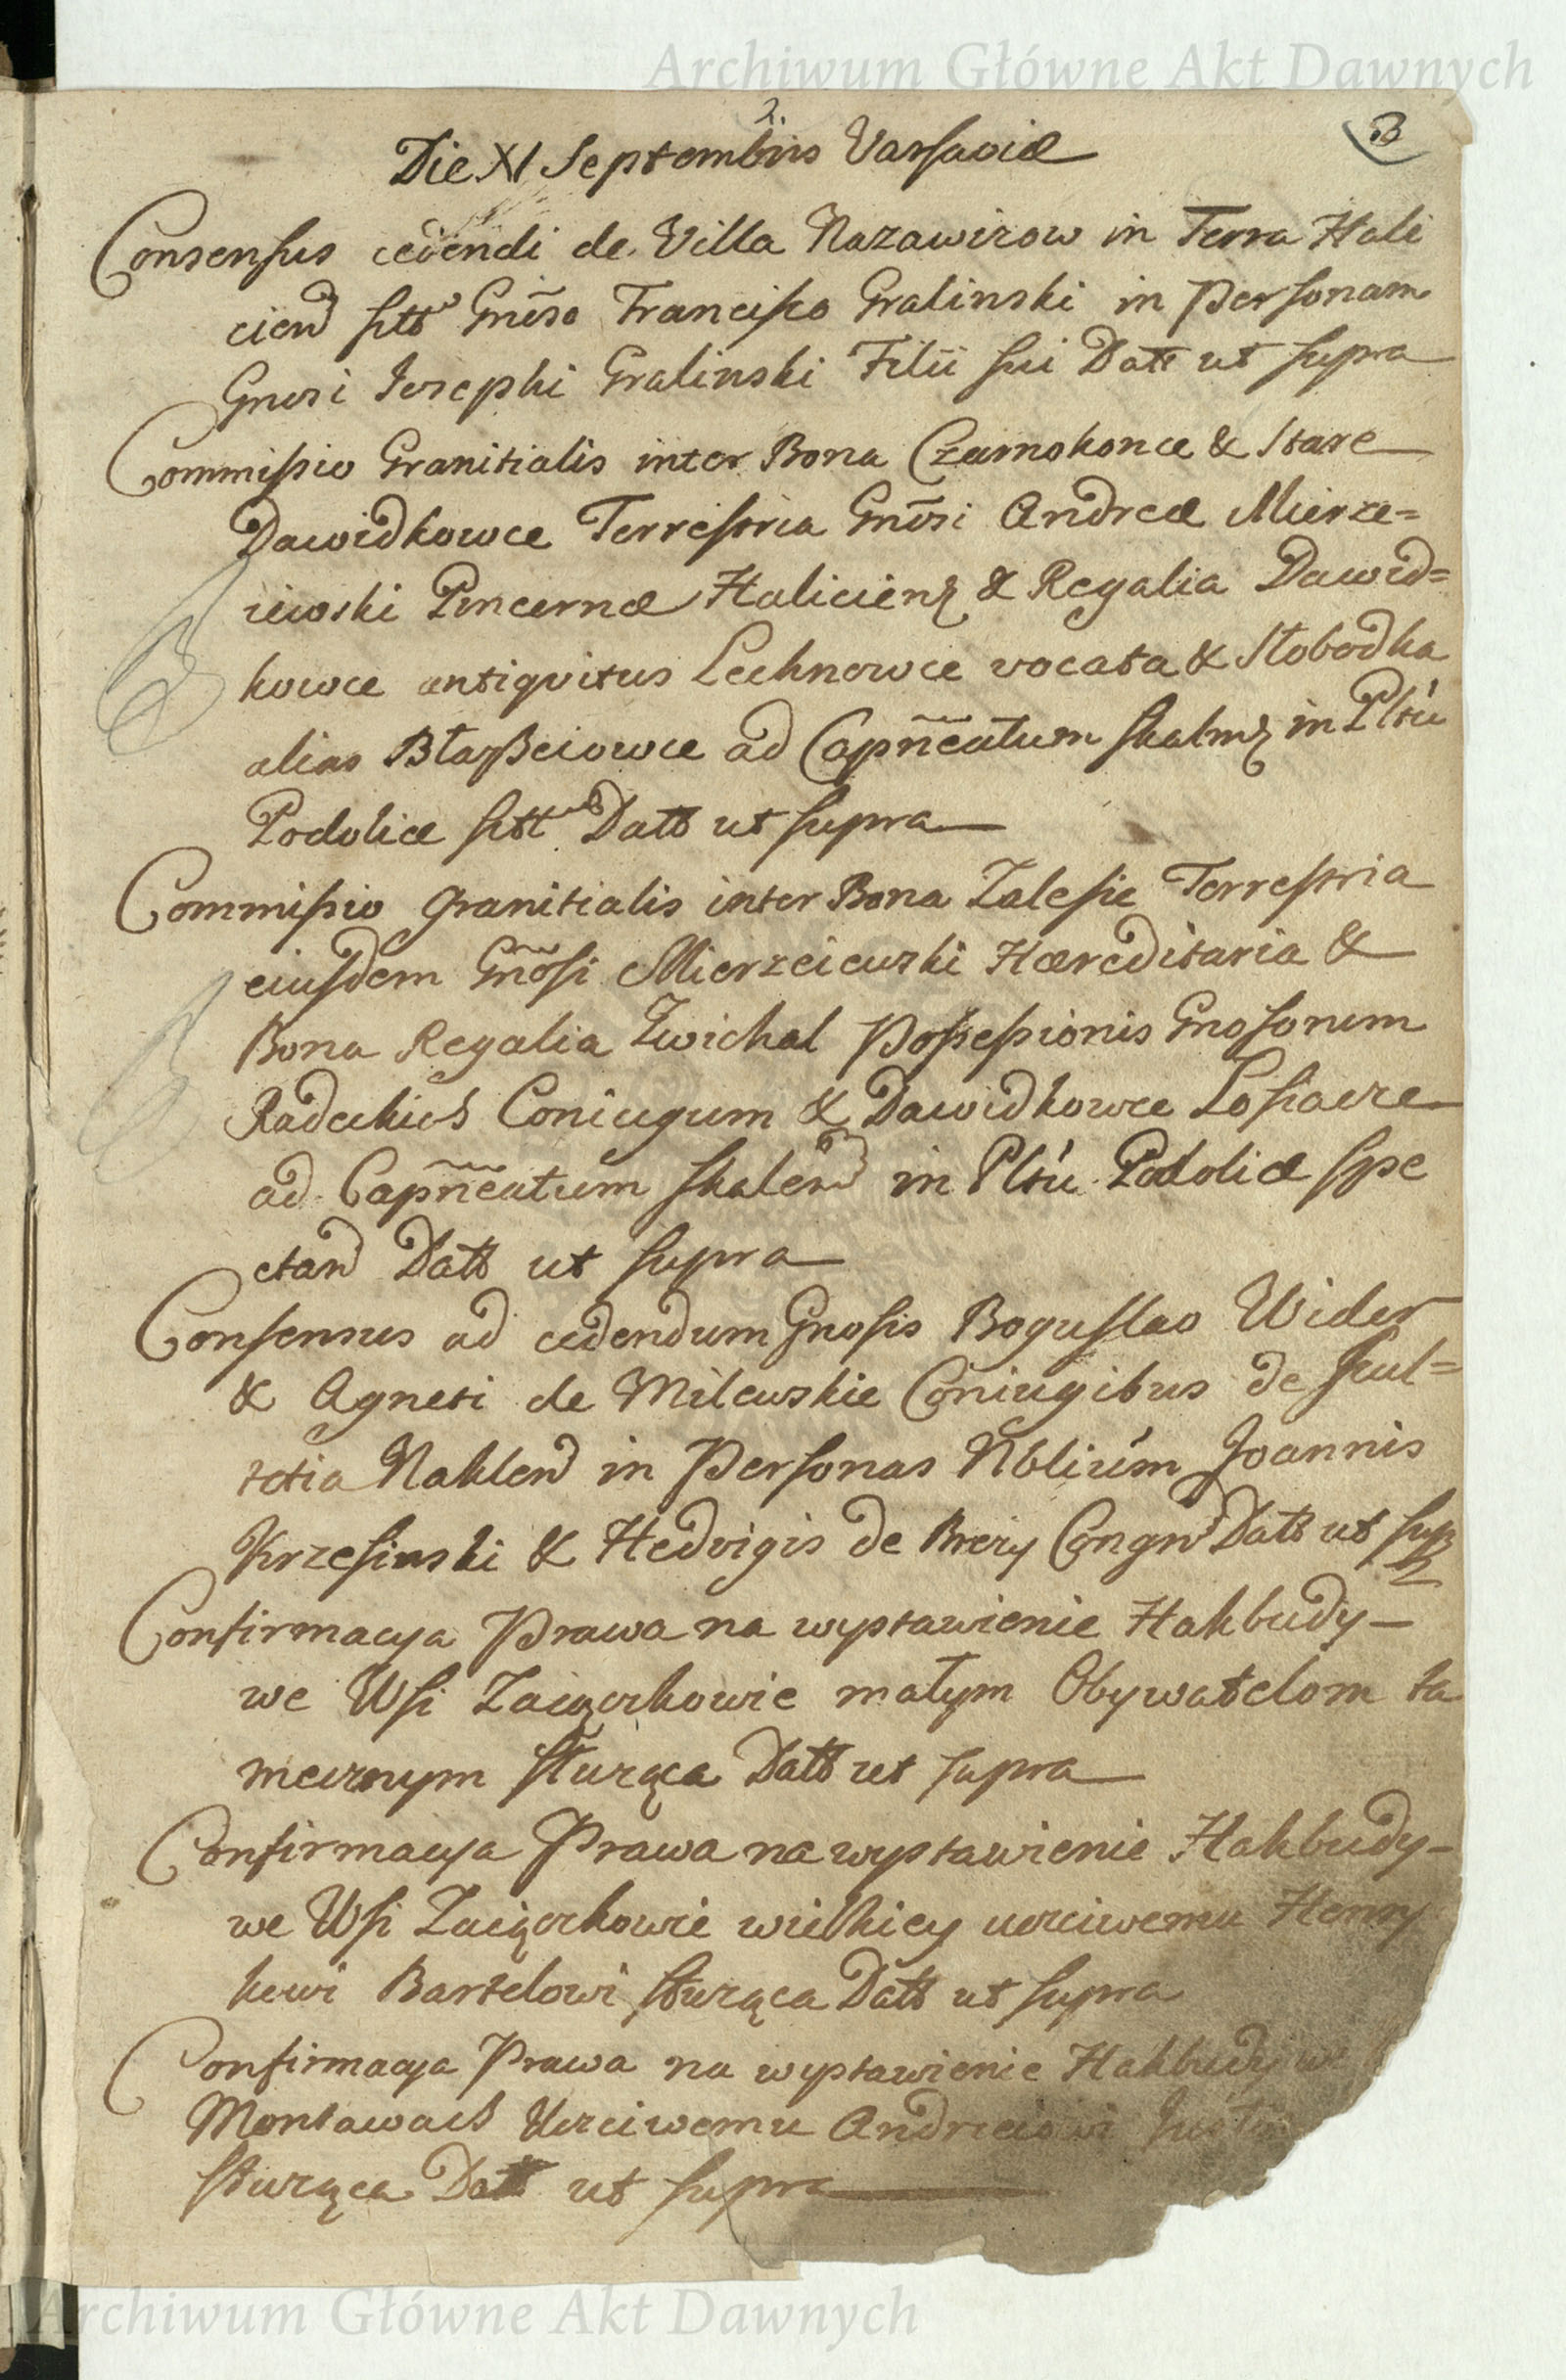 Archiwum Główne Akt Dawnych
2.
3
Die XI Septembris Varsaviæ
Consensus cedendi de Villa Nazawizow in Terra Hali
cien sitt Gnõso Francisco Gralinski in Personam
Gnosi Iosephi Gralinski Filii sui Datt ut supra
Commissio Granitialis inter Bona Czarnokonce & Stare
Dawidkowce Terrestria Gnõsi Andreæ Mierze=
iewski Pincernæ Halicien & Regalia Dawid=
kowce antiqvitus Lechnowce vocata & Słobodka
alias Błaszciowce ad Capñeatum Skalen in Pltu
Podoliæ sitt Datt ut supra
Commissio Granitialis inter Bona Zalesie Terrestria
eiusdem Gnõsi Mierzeiewski Hæreditaria &
Bona Regalia Zwichal Possessionis Gnosorum
Radeckich Coniugum & Dawidkowce Łosiacze
ad Capñeatum Skalen in Pltu Podoliæ spe
ctan Datt ut supra
Consensus ad cedendum Gnosis Boguslao Wider
& Agneti de Milewskie Coniugibus de Scul=
tetia Naklen in Personas Nblium Joannis
Krzesinski & Hedvigis de Brezy Congn Datt ut sup
Confirmacya Prawa na wystawienie Hakbudy
we Wsi Zaiączkowie małym Obywatelom ta
mecznym służąca Datt ut supra
Confirmacya Prawa na wystawienie Hakbudy
we Wsi Zaiączkowie wielkiey uczciwemu Henry
kowi Bartelowi służąca Datt ut supra
Confirmacya Prawa na wystawienie Hakbudy w
Montawach Uczciwemu Andrzeiowi
służąca Datt ut supra
Archiwum Główne Akt Dawnych